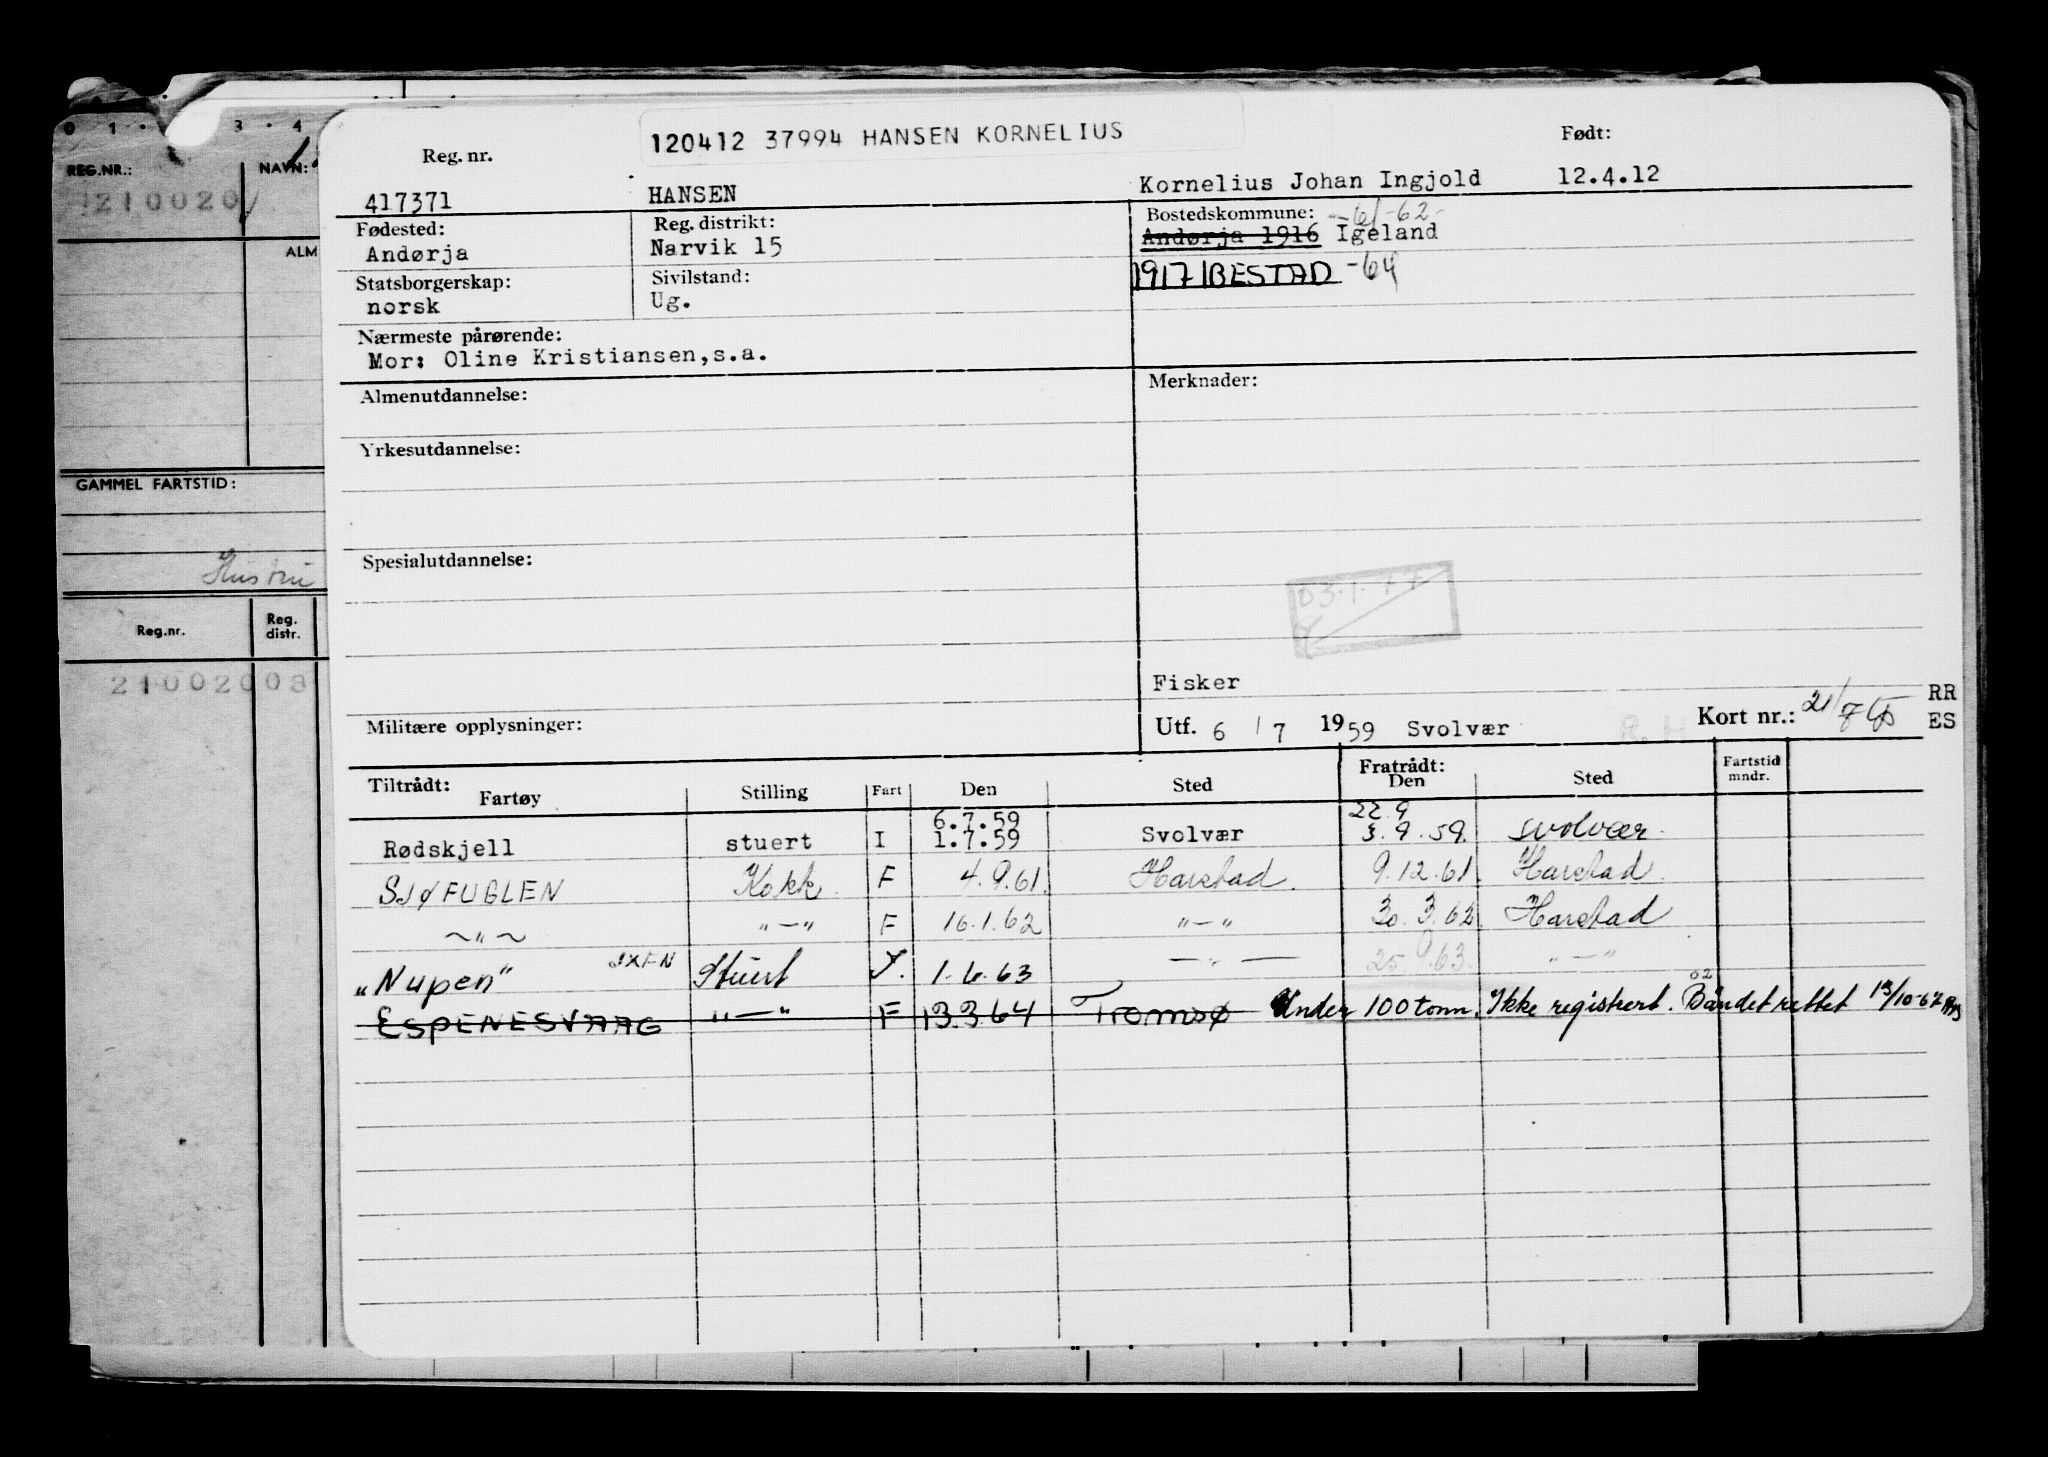 120412 37994 HANSEN KORNELIUS
Reg. nr. Født:
417371 HANSEN Kornelius Johan Ingjold 12.4.12
Fødested: Reg. distrikt: Bostedskommune: -61-62-
Andørja Narvik 15 Andørja 1916 Igeland
Statsborgerskap: Sivilstand: 1917 IBESTAD -64
norsk Ug.
Nærmeste pårørende:
Mor: Oline Kristiansen,s.a.
Almenutdannelse: Merknader:
Yrkesutdannelse:
Spesialutdannelse:
03.1.77
Fisker
Militære opplysninger: Utf. 6 / 7 1959 Svolvær R.H Kort nr.: 21/7 RR
ES
Tiltrådt: Fratrådt: Fartstid
Fartøy Stilling Fart Den Sted Den Sted mndr.
6.7.59 22.9
Rødskjell stuert I 1.7.59 Svolvær 3.9.59. Svolvær
SJØFUGLEN Kokk F 4.9.61. Harstad. 9.12.61. Harstad.
~"~ "—" F 16.1.62 "—" 30.3.62 Harstad
"Nupen" JXFN Stuert I. 1.6.63 —"— 25.9.63. "—"
ESPENESVAAG "—" F 13.3.64 Tromsø Under 100 tonn. Ikke registrert. Båndet rettet 13/10-67
02
0 1 . 3 . 4
REG.NR.: NAVN:
210020
ALM
GAMMEL FARTSTID:
Hustru
Reg.nr. Reg.
distr.
21002008